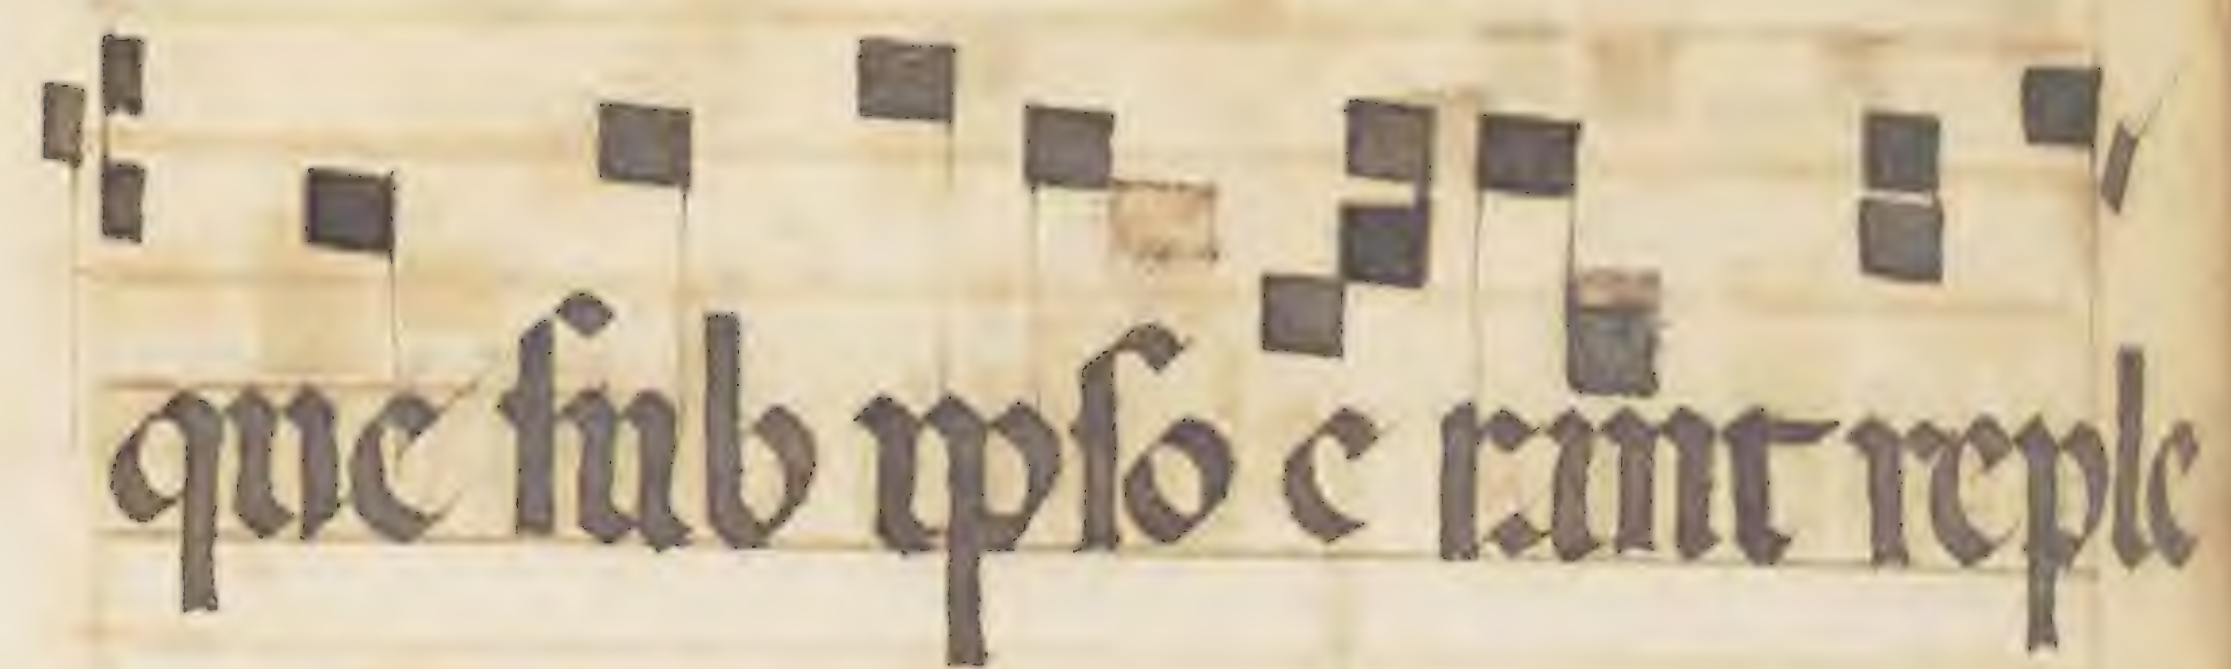 que sub ipso e rant reple